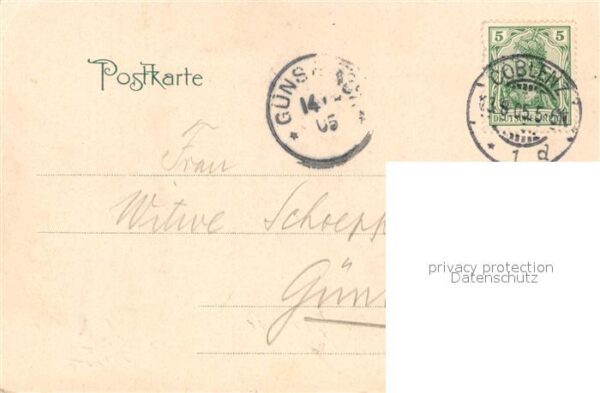 Postkarte
5 5
DEUTSCHES REICH
COBLENZ
1 d
GÜNS
14
05
Frau
Witwe Schoepp
Gün
privacy protection
Datenschutz